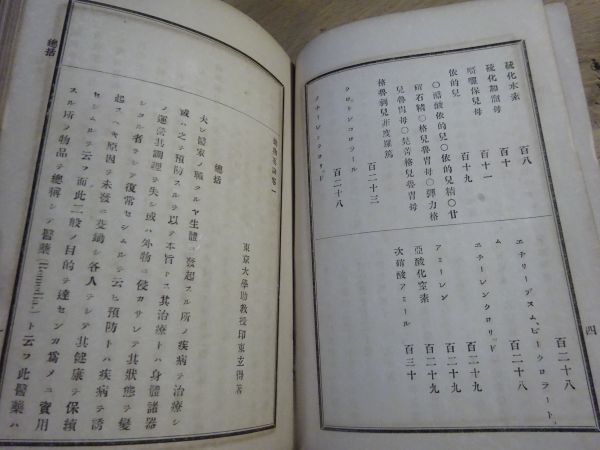 硫化水素　百八
硫化加爾叟母　百十
哥囉仿兒母　百十一
依的兒　百十九
○醋酸依的兒○依的兒精○甘
硝石精○格兒魯胃母○彈力格
兒魯胃母○芫菁格兒魯胃母
格魯剌兒非度羅篤　百二十三
クロトンコロラール
ブチールクロリッド　百二十八
エチリーデスム、ビークロラートム　百二十八
エチーレンクロリッド　百二十九
アミーレン　百二十九
亞酸化窒素　百二十九
次硝酸アミール　百三十
四
總括
藥物要論卷一
東京大學助教授印東玄得著
總括
夫レ醫家ノ職タルヤ生體ニ發起スル所ノ疾病ヲ治療シ
或ハ之ヲ預防スルヲ以テ本旨トス其治療トハ身體諸器
ノ運營其調理ヲ失シ或ハ外物ニ侵カサレテ其狀態ヲ變
シタル者ヲシテ復常セシムルヲ云ヒ預防トハ疾病ヲ誘
起スヘキ原因ヲ未發ニ芟鋤シ各人ヲシテ其健康ヲ保續
セシムルヲ云フ而此二般ノ目的ヲ達センカ爲メニ實用
スル所ノ物品ヲ總稱シテ醫藥(Remedia.)ト云フ此醫藥ハ